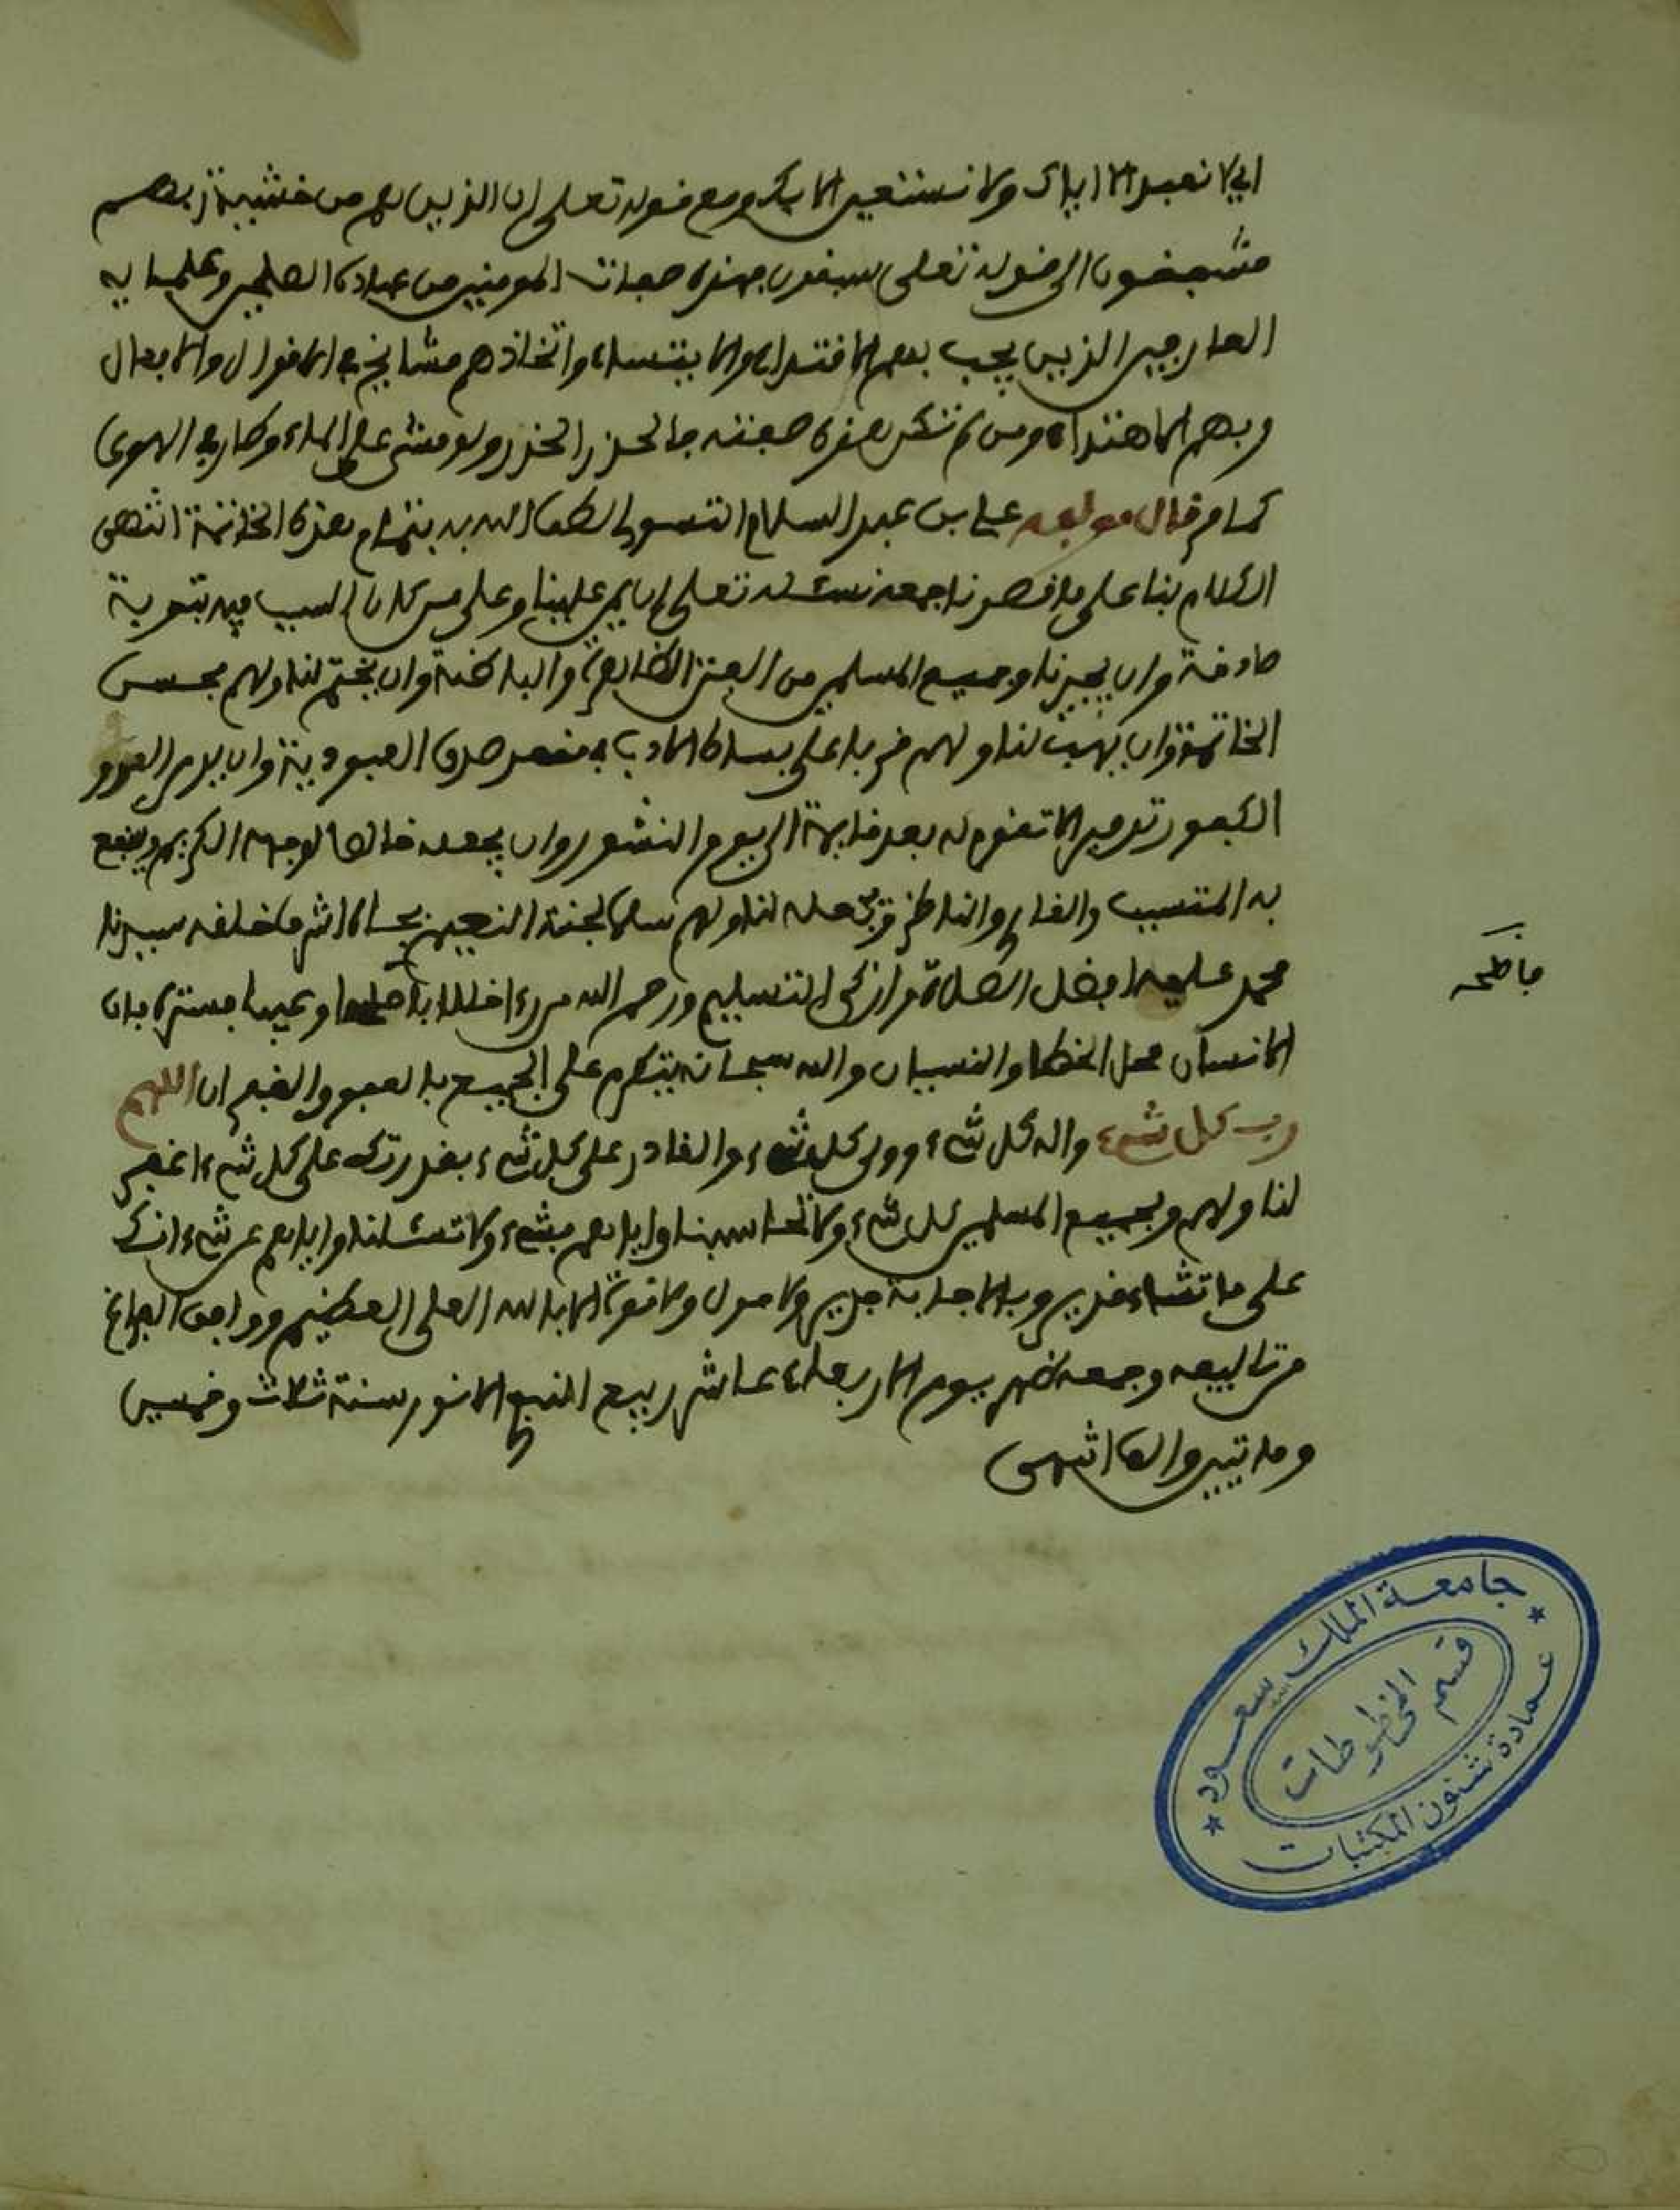 اي لا نعبد الا اياك ولا نستعين الا بك ومع قوله تعلى ان الذين هم من خشية ربهم
مشفقون الى قوله تعلى سبقون فهذه صفات المومنين من عباده الصلحين وعلمايه
العارفين الذين يجب بهم الاقتداء والايتساء واتخاذهم مشايخ في الاقوال والافعال
وبهم الاهتداء ومن لم تكن هذه صفته فالحذر الحذر ولو مشى على الماء وطار في الهوى
كما مر قال مولفه علي بن عبد السلام التسولي لطف الله به بتمام هذه الخاتمة انتهى
الكلام بنا على ما قصدنا جمعه نسئله تعلى ان يمن علينا وعلى من كان السبب فيه بتوبة
صادقة وان يجيرنا وجميع المسلمين من الفتن الظاهرة والباطنة وان يختم لنا ولهم بحسن
الخاتمة وان يهب لنا ولهم قربا على بساط الادب في مقعد صدق العبودية وان يدمر العدو
الكفور تدميرا لا تقوم له بعد قايمة الى يوم النشور وان يجعله خالصا لوجهه الكريم وينفع
به المتسبب والقارئ والناظر ويجعله لنا ولهم سلما لجنة النعيم بجاه اشرف خلقه سيدنا
محمد عليه افضل الصلاة وازكى التسليم ورحم الله من رءا خللا فاصلحه او عيبا فستره فان
فاصلحه
الانسان محل الخطا والنسيان والله سبحانه يتكرم على الجميع بالعفو والغفران اللهم
رب كل شيء واله كل شيء وولي كل شيء والقادر على كل شيء بقدرتك على كل شيء اغفر
لنا ولهم ولجميع المسلمين كل شيء ولا تحاسبنا واياهم بشيء ولا تسئلنا واياهم عن شيء انك
على ما تشاء قدير وبالاجابة جدير ولا حول ولا قوة الا بالله العلي العظيم ووافق الفراغ
من تاليفه وجمعه ظهر يوم الاربعاء عاشر ربيع النبوي الانور سنة ثلاث وخمسين
ومايتين والف انتهى
جامعة الملك سعود
قسم المخطوطات
عمادة شئون المكتبات